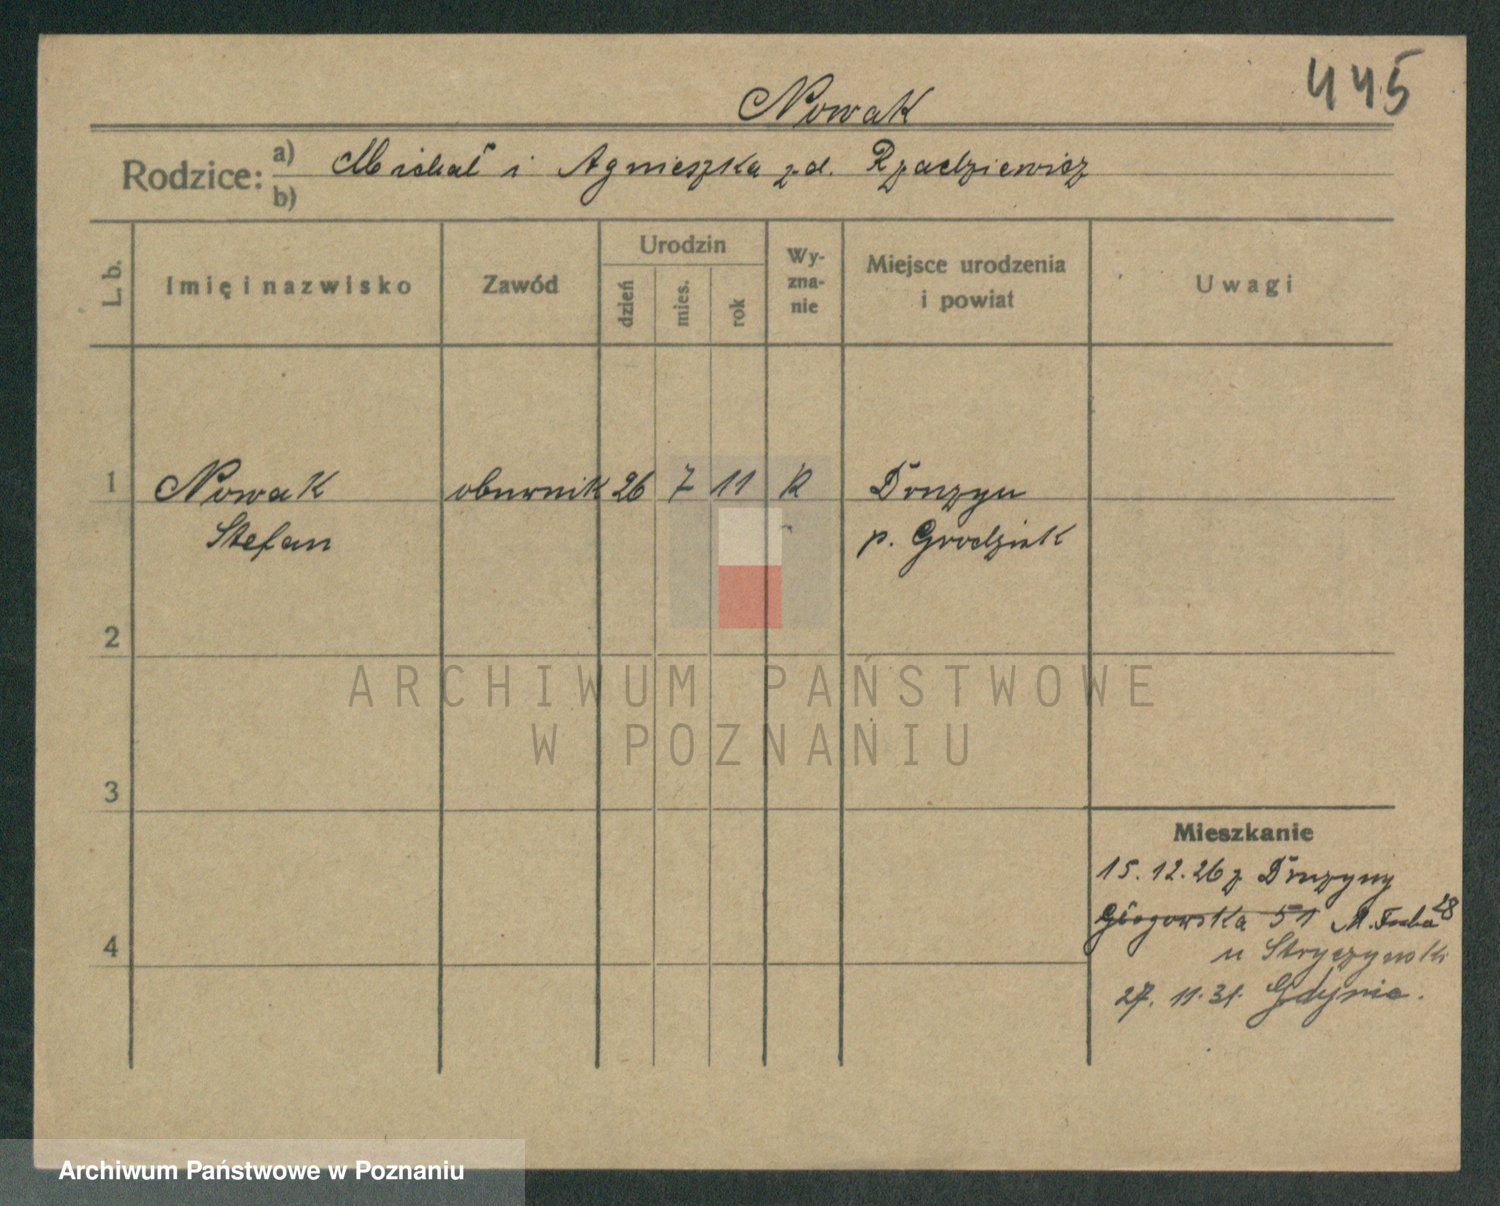 445
Nowak
Rodzice: a) Michał i Agnieszka z d. Rzadziewicz
b)
L. b.
Imię i nazwisko
Zawód
Urodzin
dzień
mies.
rok
Wy-
zna-
nie
Miejsce urodzenia
i powiat
Uwagi
1 Nowak oburnik 26 7 11 R Druzyn
Stefan p. Grodzisk
2
ARCHIWUM PAŃSTWOWE
W POZNANIU
3
Mieszkanie
15.12.26 z Druzyny
4 Głogowska 51 M. 28
u Stryczynski
27. 11. 31. Gdynia.
Archiwum Państwowe w Poznaniu